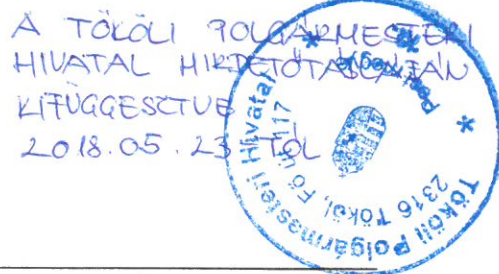 A TÖKÖLI POLGÁRMESTERI
HIVATAL HIRDETŐTÁBLÁJÁN
KIFÜGGESZTVE
2018.05.23-TÓL
Tököli Polgármesteri Hivatal
2316 Tököl, Fő u. 117
* Pest megye *